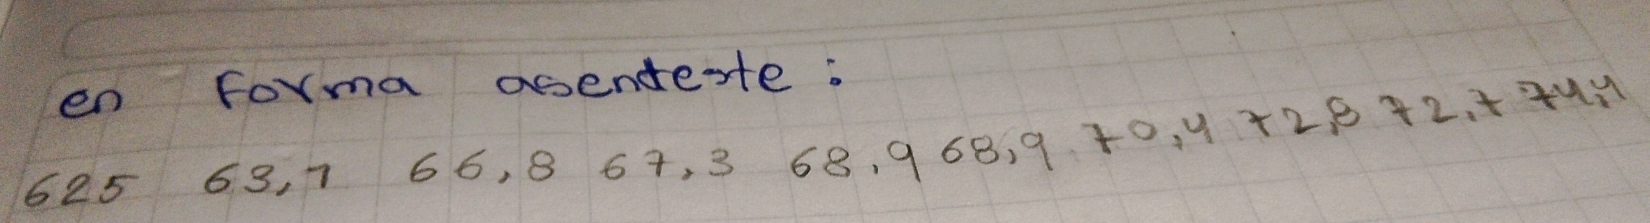 en forma asendente:
625 63,1 66,8 67,3 68,9 68,9 70,4 72,8 72,7 74,4